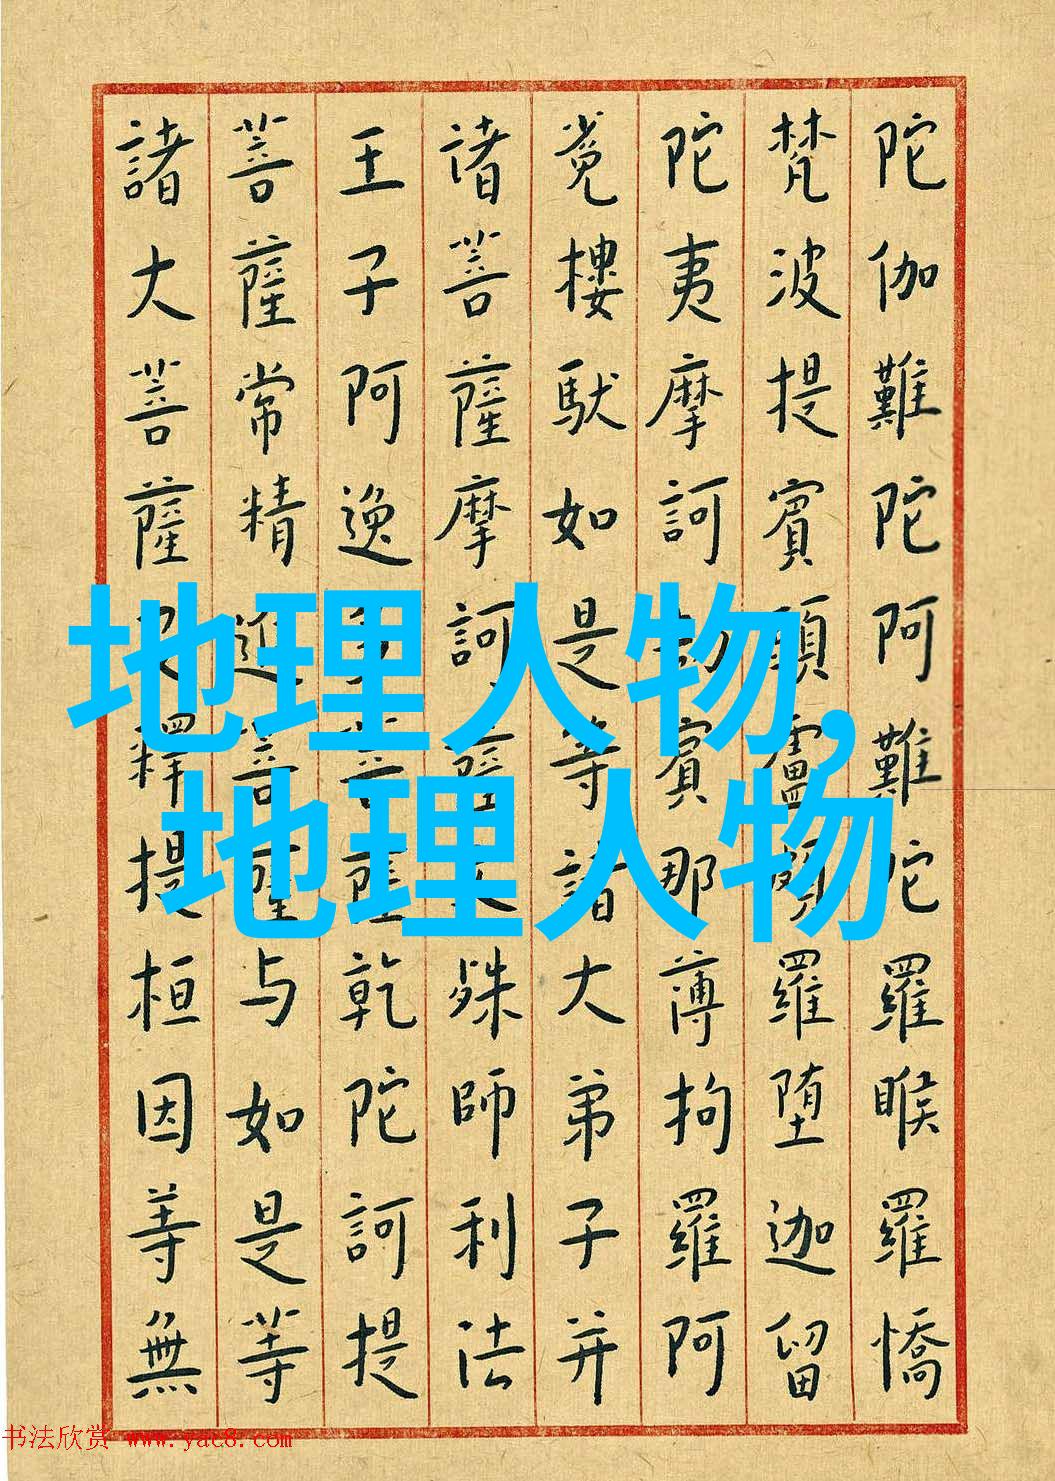 陀伽難陀阿難陀羅睺羅憍
梵波提賓頭盧頗羅堕迦留
陀夷摩訶劫賓那薄拘羅阿
㝹樓馱如是等諸大弟子并
诸菩薩摩訶薩文殊師利法
王子阿逸多菩薩乾陀訶提
菩薩常精進菩薩与如是等
諸大菩薩及釋提桓因等無
地理人物,
地理人物
书法欣赏 www.yac8.com